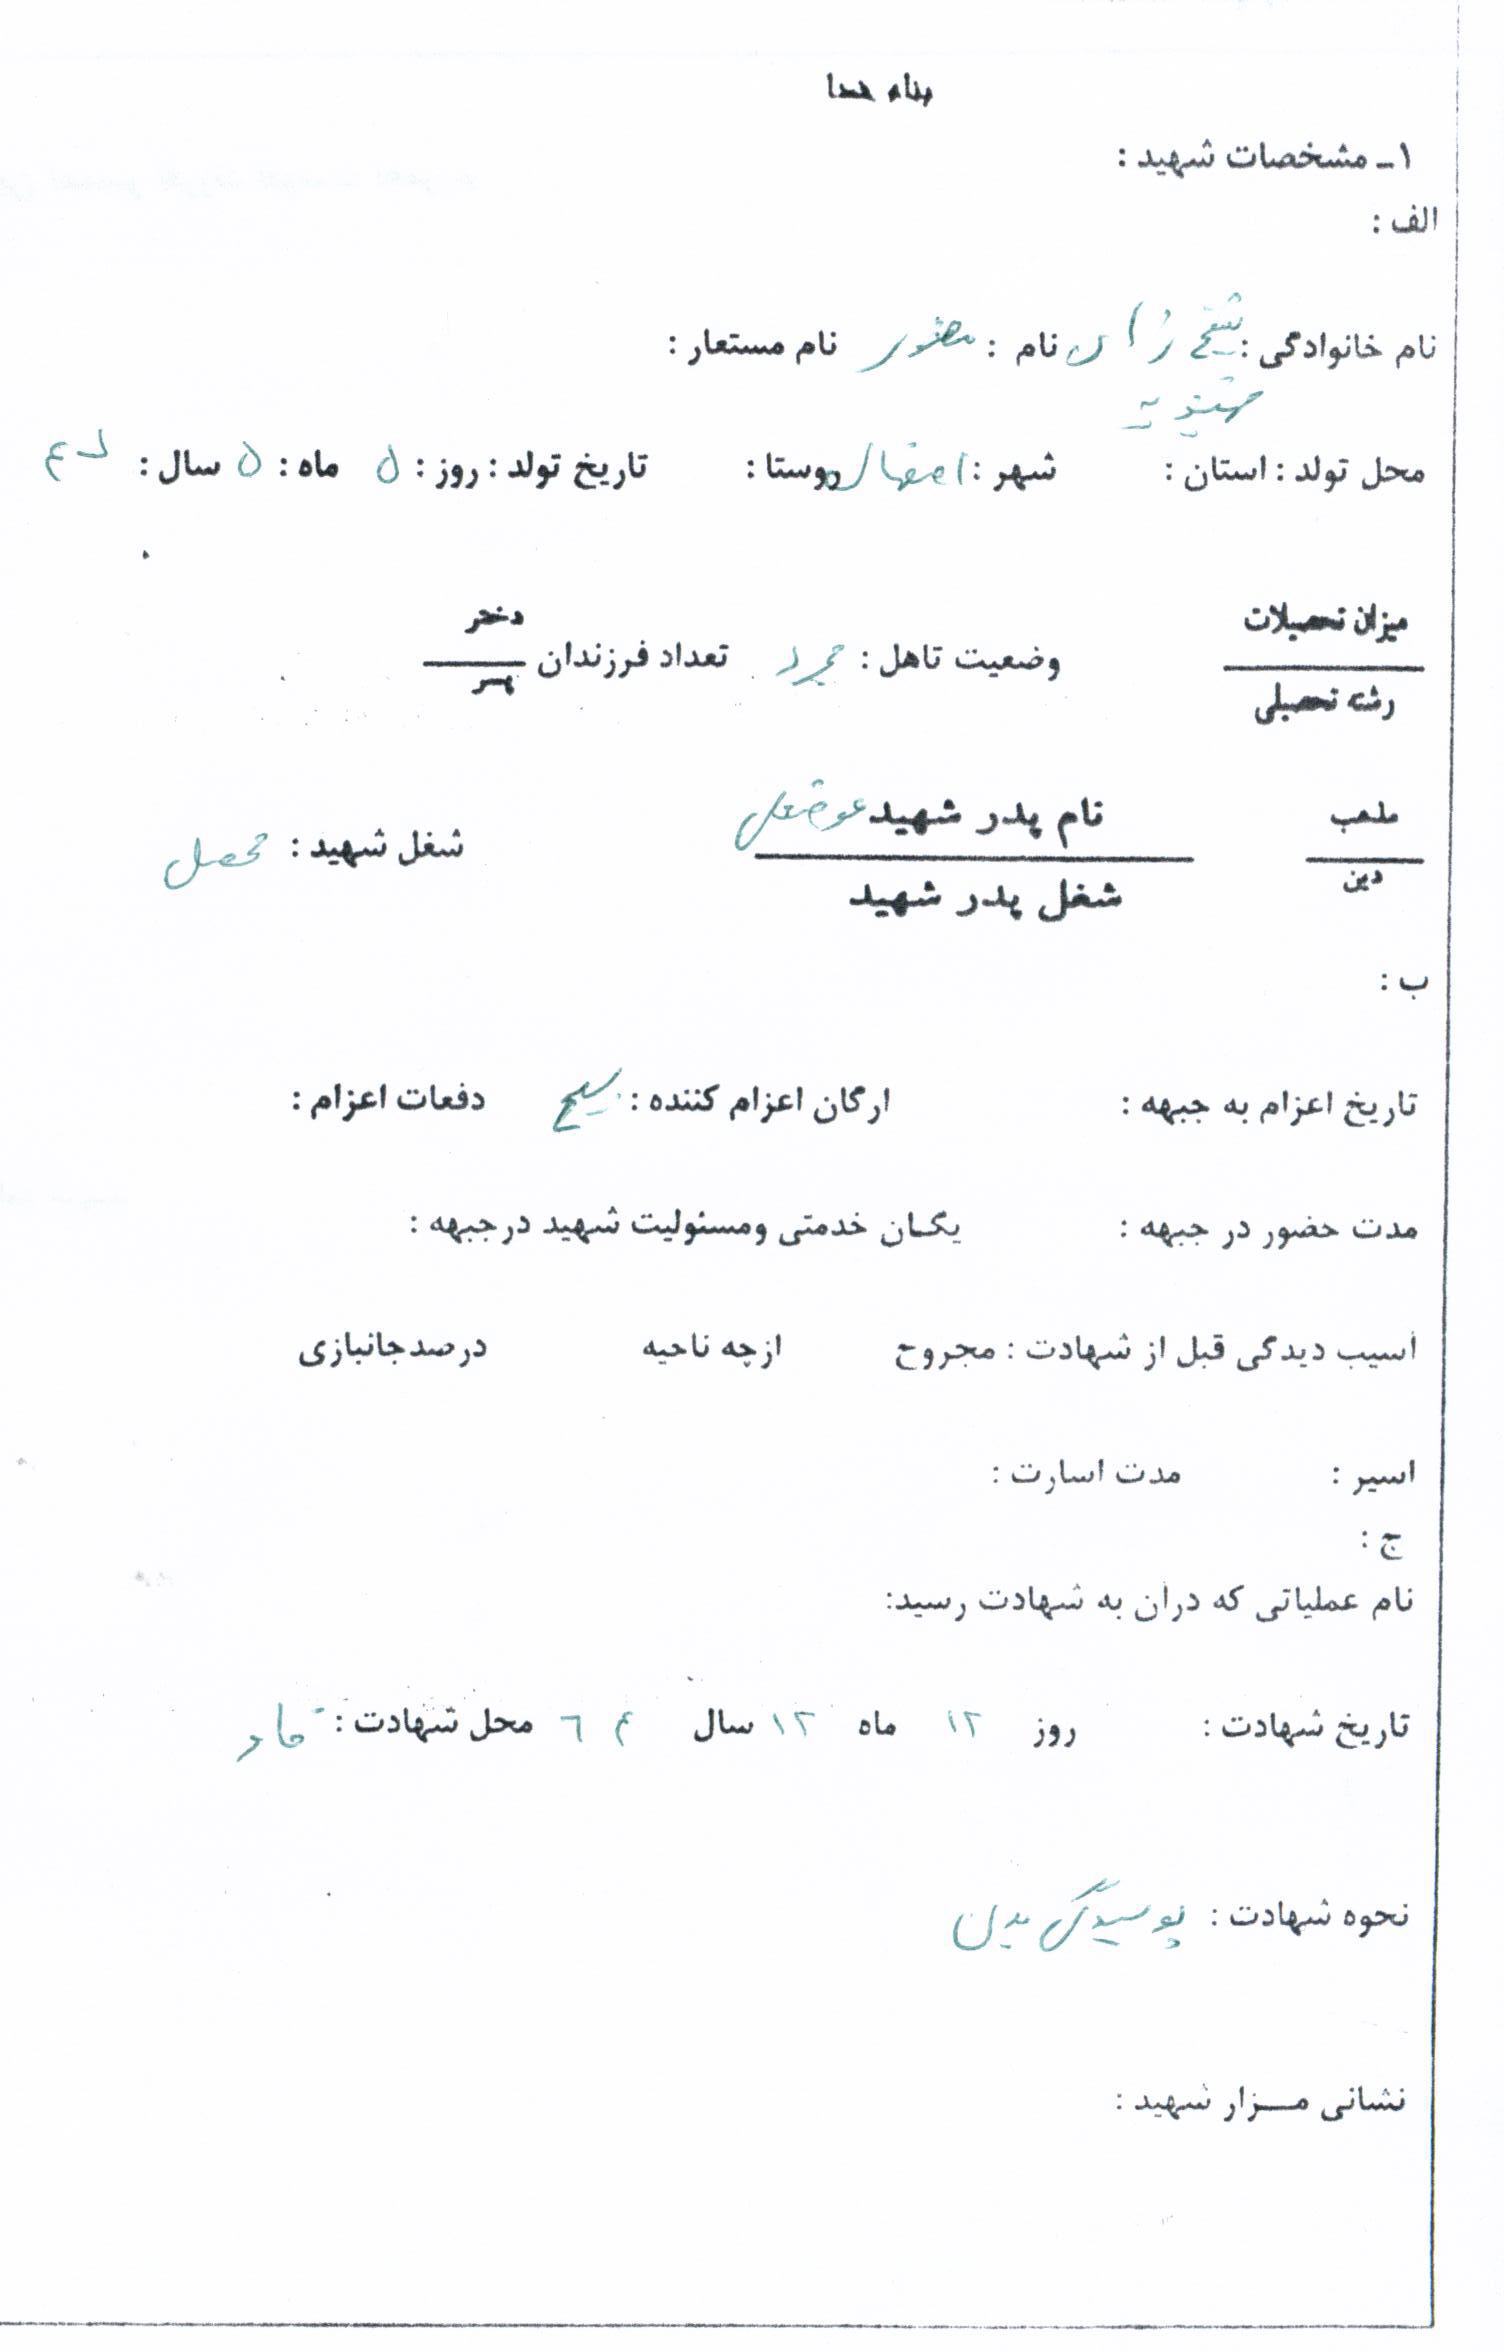 بنام خدا
۱ـ مشخصات شهید :
الف :
نام خانوادگی : شیخ زا نام : منصور نام مستعار :
محل تولد : استان : شهر : اصفهان روستا : تاریخ تولد : روز : ۵ ماه : ۵ سال :
میزان تحصیلات
رشته تحصیلی
وضعیت تاهل : مجرد تعداد فرزندان
دختر
پسر
مذهب
دین
نام پدر شهید عوضعلی
شغل پدر شهید
شغل شهید : محصل
ب :
تاریخ اعزام به جبهه : ارگان اعزام کننده : بسیج دفعات اعزام :
مدت حضور در جبهه : یگان خدمتی ومسئولیت شهید درجبهه :
آسیب دیدگی قبل از شهادت : مجروح ازچه ناحیه درصدجانبازی
اسیر : مدت اسارت :
ج :
نام عملیاتی که درآن به شهادت رسید:
تاریخ شهادت : روز ۱۲ ماه ۱۲ سال ۶۴ محل شهادت : فاو
نحوه شهادت : پوسیدگی بدن
نشانی مـــزار شهید :